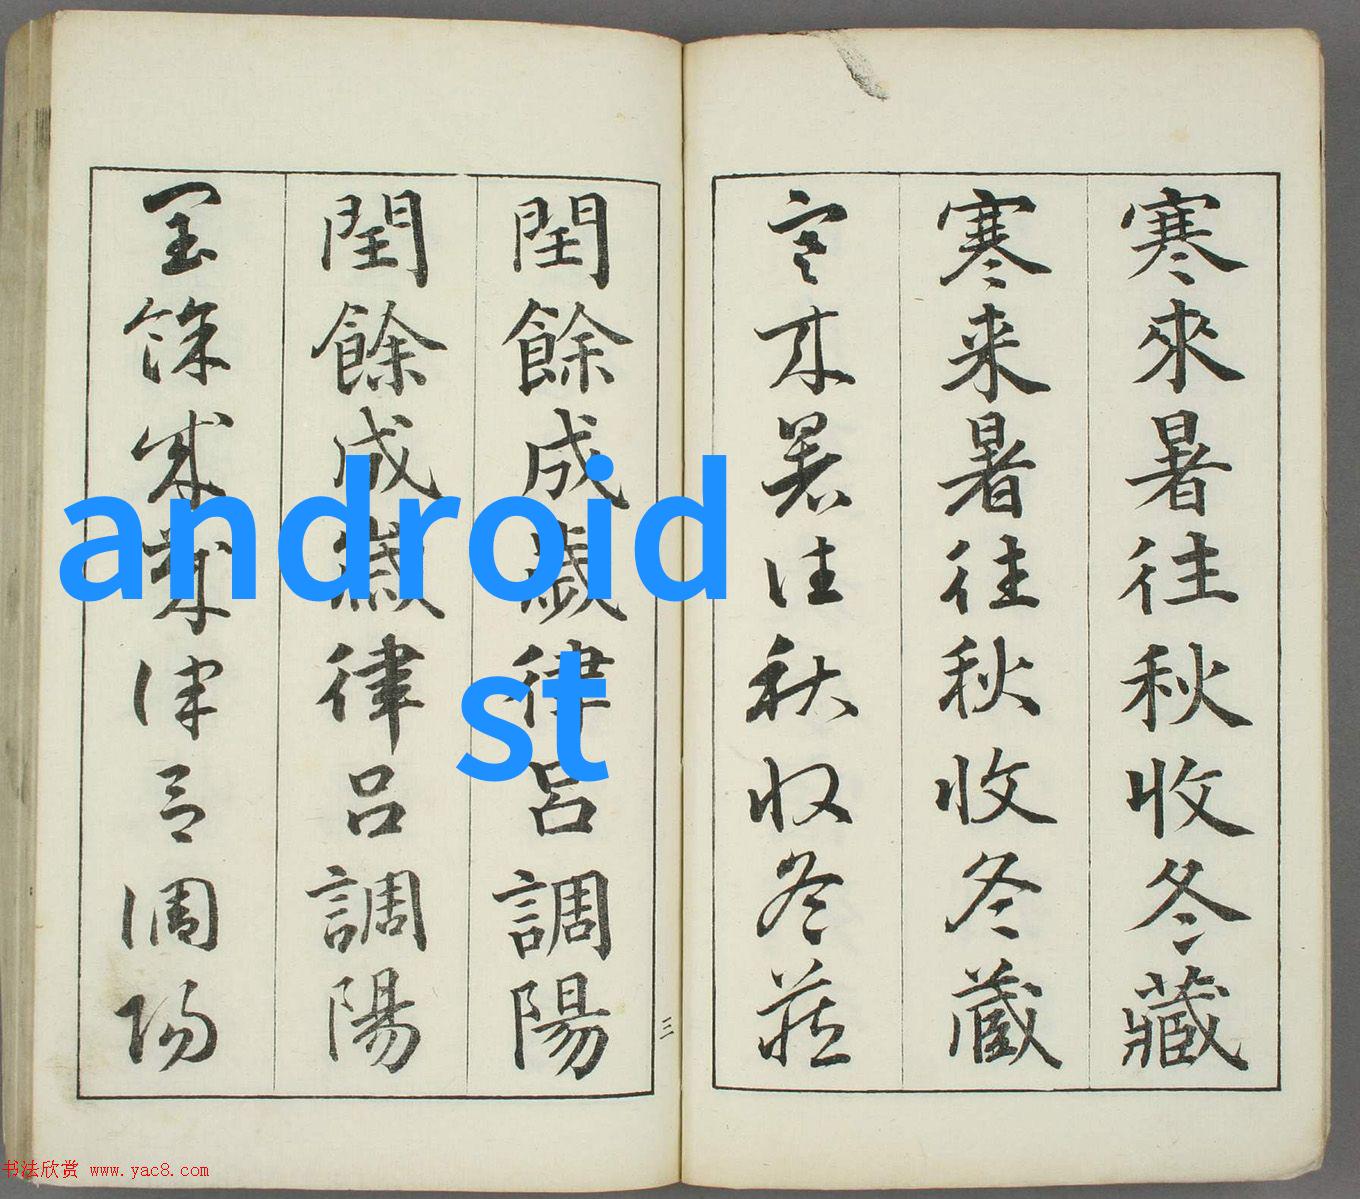 寒來暑往秋收冬藏
寒来暑往秋收冬蔵
寒来暑往秋收冬藏
閏餘成歲律呂調陽
閏餘成歲律呂調陽
閏餘成歲律呂調陽
三
android
st
书法欣赏 www.yac8.com